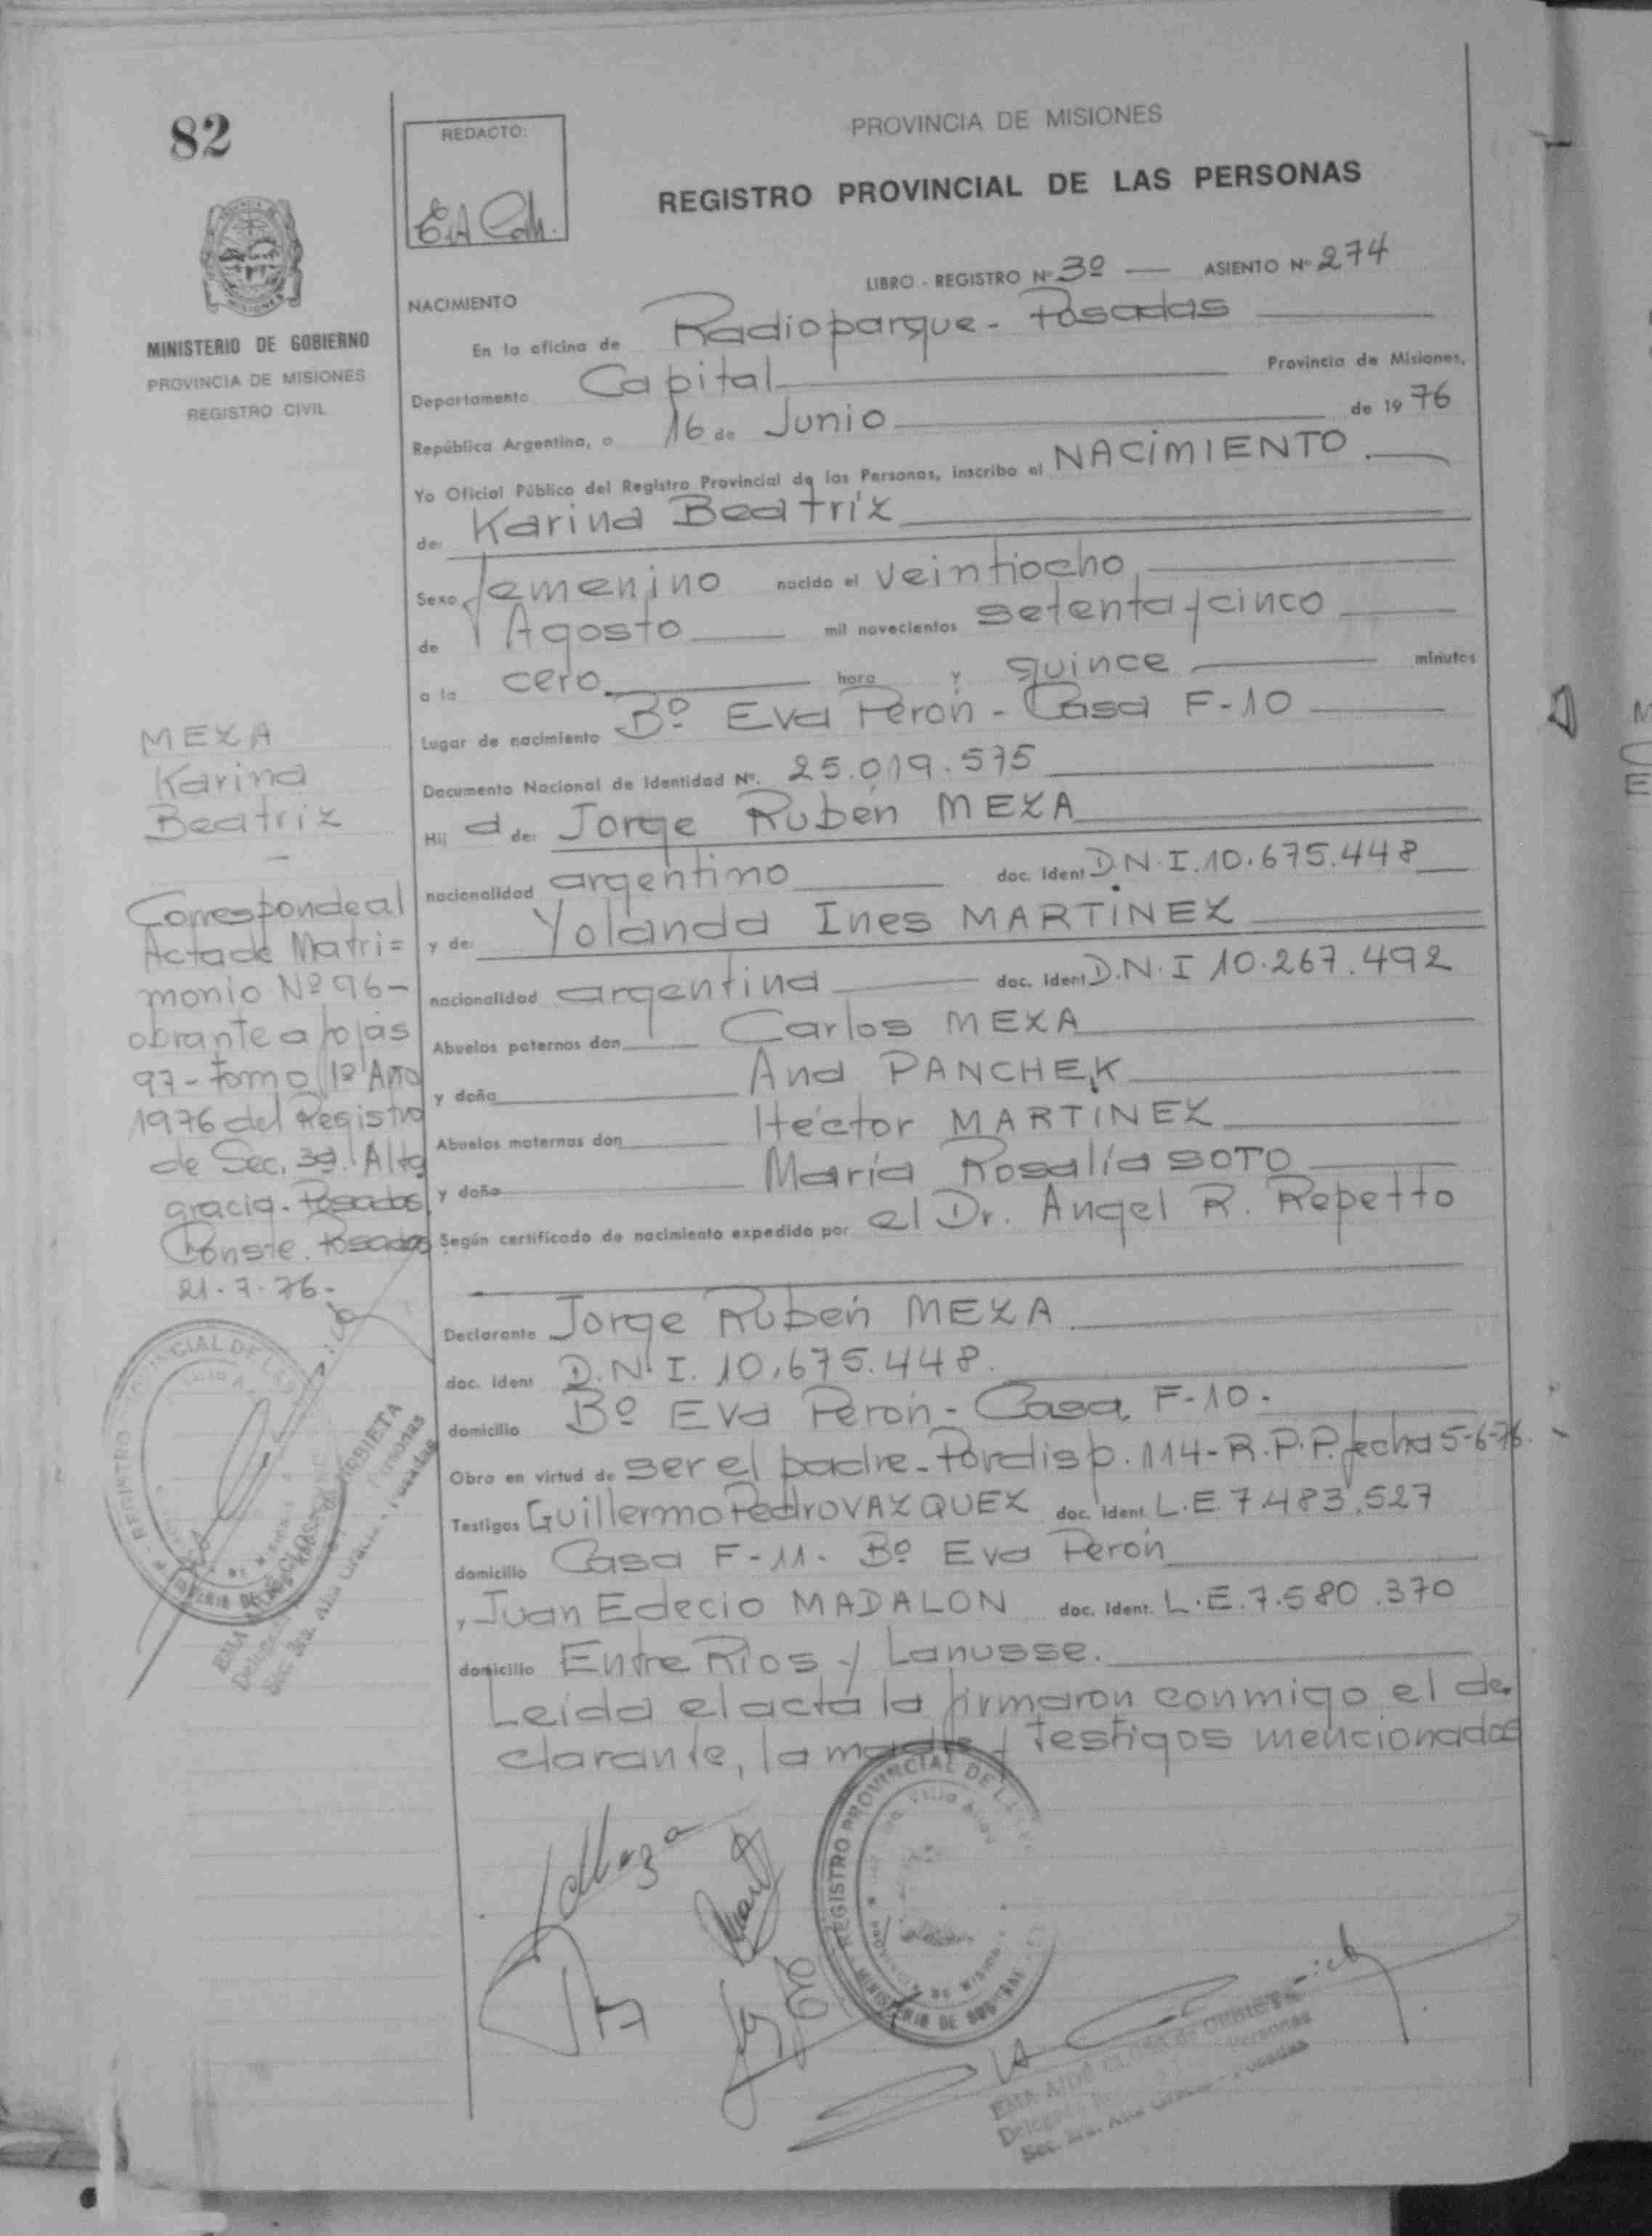 82
REDACTO:
PROVINCIA DE MISIONES
REGISTRO PROVINCIAL DE LAS PERSONAS
LIBRO - REGISTRO Nº 3º — ASIENTO Nº 274
NACIMIENTO
MINISTERIO DE GOBIERNO
PROVINCIA DE MISIONES
REGISTRO CIVIL
En la oficina de Radioparque - Posadas
Departamento Capital Provincia de Misiones,
República Argentina, a 16 de Junio de 1976
Yo Oficial Público del Registro Provincial de las Personas, inscribo el NACIMIENTO
de: Karina Beatriz
Sexo femenino nacido el veintiocho
de Agosto mil novecientos setenta y cinco
a la cero hora y quince minutos
Lugar de nacimiento Bº Eva Perón - Casa F-10
Documento Nacional de Identidad Nº. 25.019.575
Hij a de: Jorge Rubén MEZA
nacionalidad argentino doc. Ident D.N.I. 10.675.448
y de: Yolanda Ines MARTINEZ
nacionalidad argentina doc. Ident D.N.I 10.267.492
Abuelos paternos don Carlos MEZA
y doña Ana PANCHEK
Abuelos maternos don Héctor MARTINEZ
y doña María Rosalía SOTO
Según certificado de nacimiento expedido por el Dr. Angel R. Repetto
Declarante Jorge Rubén MEZA
doc. Ident D.N.I. 10.675.448.
domicilio Bº Eva Perón - Casa F-10.
Obra en virtud de ser el padre - Por disp. 114 - R.P.P. fecha 5-6-76.
Testigos Guillermo Pedro VAZQUEZ doc. Ident. L.E. 7.483.527
domicilio Casa F-11. Bº Eva Perón
, Juan Edecio MADALON doc. Ident. L.E. 7.580.370
domicilio Entre Ríos y Lanusse.
Leída el acta la firmaron conmigo el de-
clarante, la madre y testigos mencionados
MEZA
Karina
Beatriz
Corresponde al
Acta de Matri=
monio Nº 96-
obrante a fojas
97 - Tomo 1º Año
1976 del Registro
de Sec. 3ª. Alta
gracia. Posadas
Conste. Posadas
21.7.76.-
REGISTRO PROVINCIAL DE LAS
MINISTERIO DE GOBIERNO
Sec. 3ra. Alta Gracia - Posadas